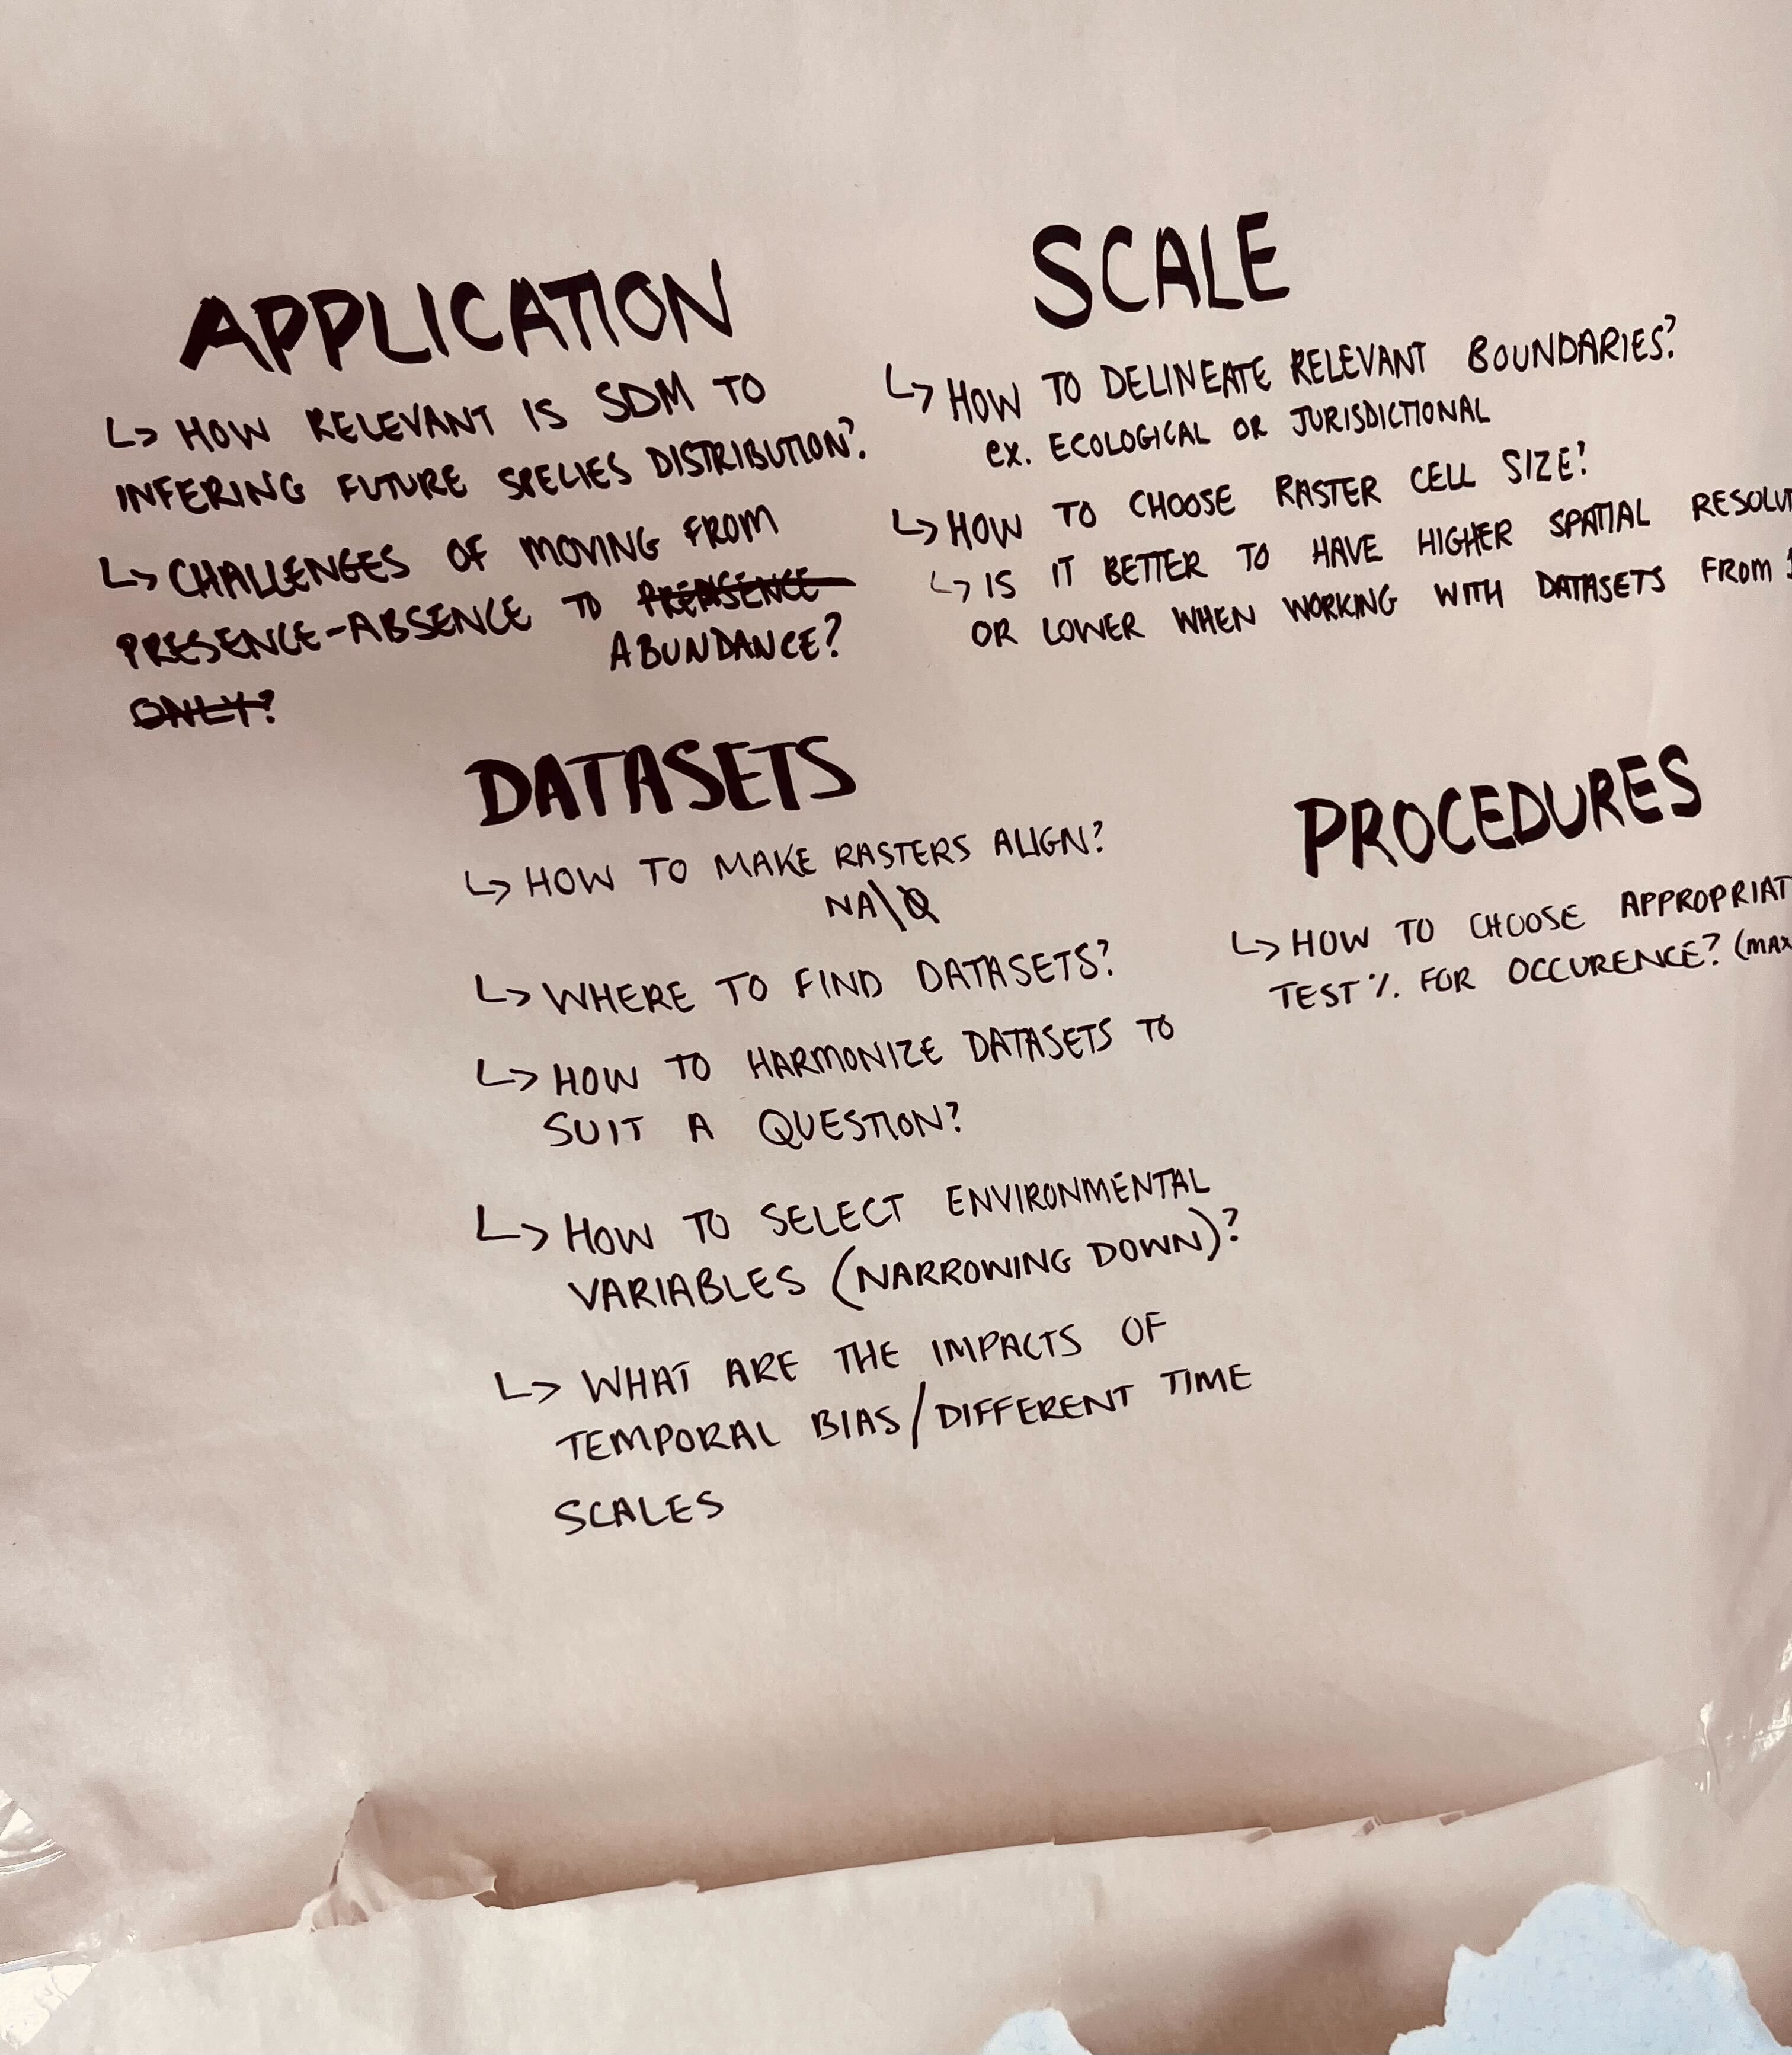 APPLICATION
↳ HOW RELEVANT IS SDM TO
INFERING FUTURE SPECIES DISTRIBUTION?
↳ CHALLENGES OF MOVING FROM
PRESENCE-ABSENCE TO
ABUNDANCE?
ONLY?
SCALE
↳ HOW TO DELINEATE RELEVANT BOUNDARIES?
ex. ECOLOGICAL OR JURISDICTIONAL
↳ HOW TO CHOOSE RASTER CELL SIZE?
↳ IS IT BETTER TO HAVE HIGHER SPATIAL
OR LOWER WHEN WORKING WITH DATASETS FROM
DATASETS
↳ HOW TO MAKE RASTERS ALIGN?
NA\
↳ WHERE TO FIND DATASETS?
↳ HOW TO HARMONIZE DATASETS TO
SUIT A QUESTION?
↳ HOW TO SELECT ENVIRONMENTAL
VARIABLES (NARROWING DOWN)?
↳ WHAT ARE THE IMPACTS OF
TEMPORAL BIAS/DIFFERENT TIME
SCALES
PROCEDURES
↳ HOW TO CHOOSE APPROPRIAT
TEST % FOR OCCURENCE? (MAX